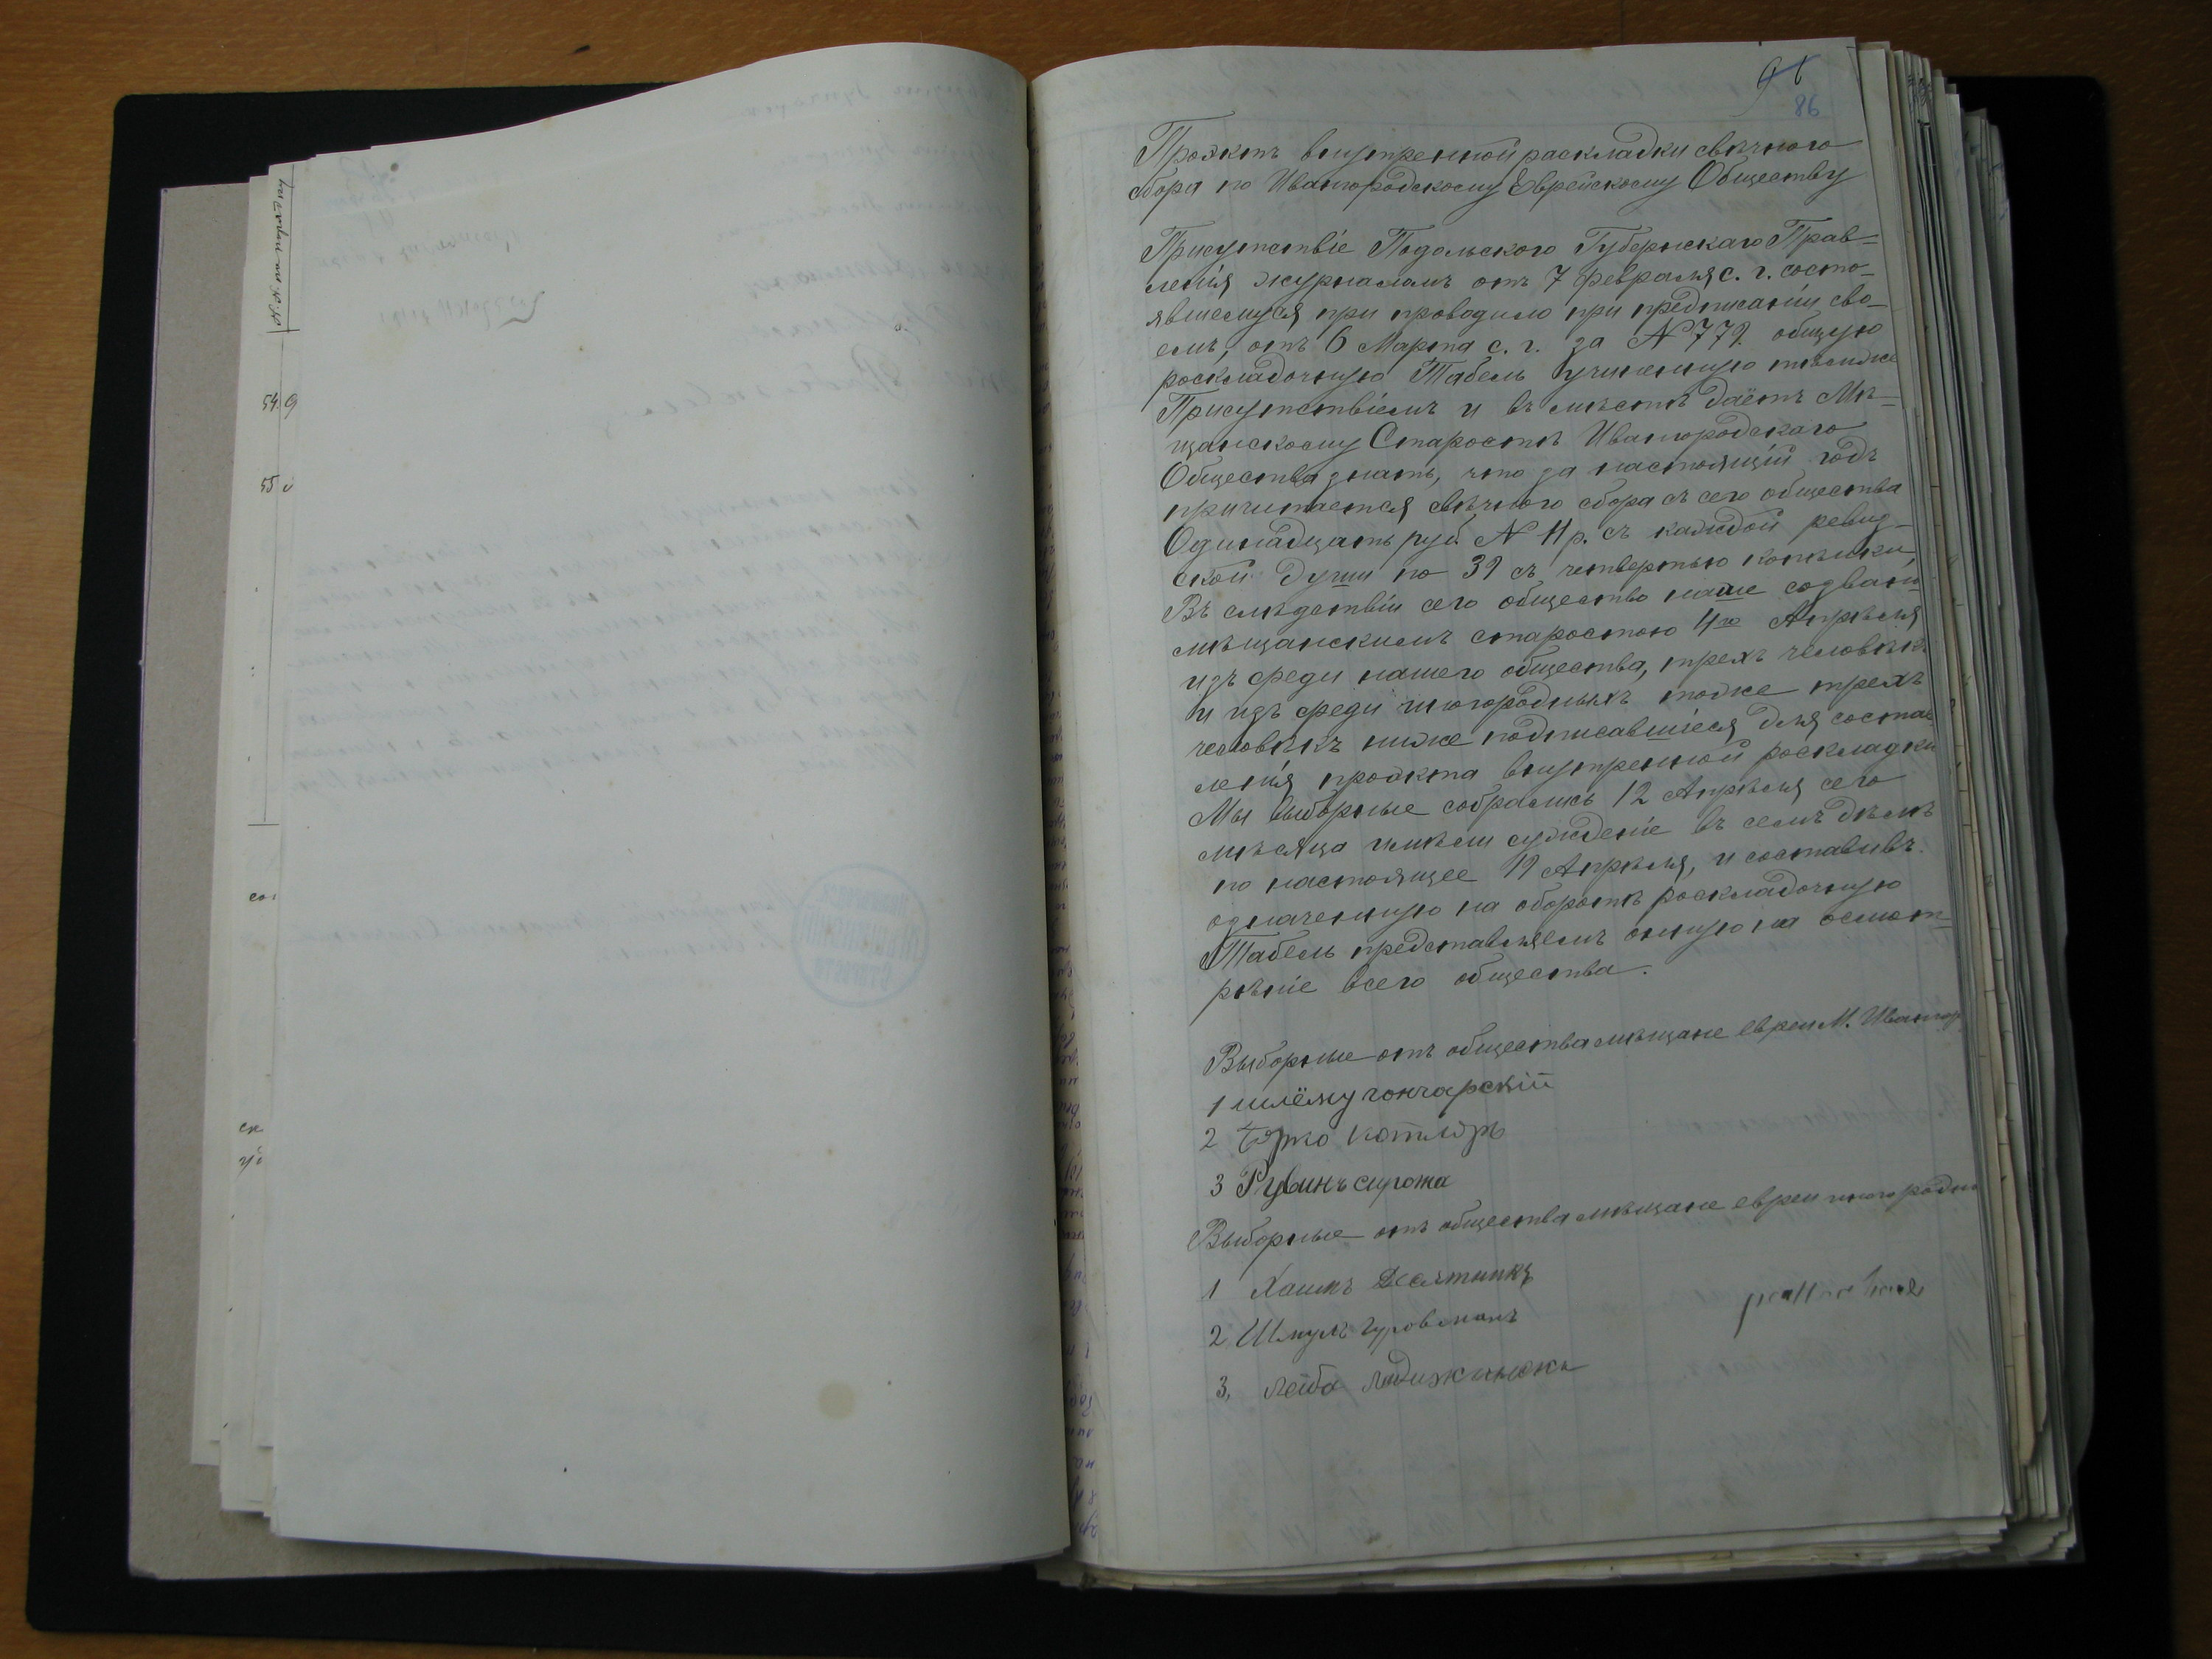 91
86
Проэктъ внутренной раскладки свѣчного
сбора по Ивангородскому Еврейскому Обществу
Присутствіе Подольского Губернскаго Прав-
ленія журналомъ отъ 7 февраля с. г. состо-
явшемуся при проводило при предписаніи сво-
емъ, отъ 6 Марта с. г. за № 779. общую
роскладочную Табель учиненную тѣмже
Присутствіемъ и въ мѣстѣ даётъ Мѣ-
щанскому Старостѣ Ивангородскаго
Общества знать, что за настоящій годъ
причитается свѣчного сбора съ сего общества
Одинадцать руб. N 11 р. съ каждой ревиз-
ской души по 39 съ четвертью копѣйки
Въ слѣдствіи сего общество наше созвано
мѣщанскимъ старостою 4го Апрѣля
изъ среди нашего общества, трехъ человѣкъ
и изъ среди иногородныхъ тоже трехъ
человѣкъ ниже подписавшіеся для состав
ленія проэкта внутренной роскладки
Мы выборные собрались 12 Апрѣля сего
мѣсяца имѣли сужденіе въ семъ дѣлѣ
по настоящее 19 Апрѣля, и составивъ
означенную на оборотѣ роскладочную
Табель представляемъ онную на осмот-
рѣніе всего общества.
Выборные отъ общества мѣщане евреи М. Ивангор
1 шлёму гончарскій
2 Іэрко Котляръ
3 Рувинъ сирота
Выборные отъ общества мѣщане евреи иногородн
1 Хаимъ Десятникъ
2 Шмуль Гуровманъ
3, Лейба Ладижинскі
№№ по порядку
54
55